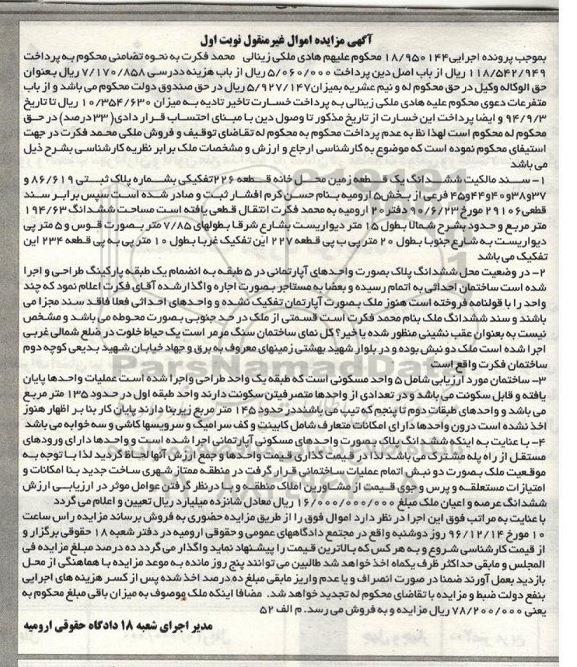 آگهی مزایده اموال غیرمنقول نوبت اول
بموجب پرونده اجرایی۱۸/۹۵۰۱۴۴ محکوم علیهم هادی ملکی زینالی محمد فکرت به نحوه تضامنی محکوم به پرداخت
۱۱۸/۵۴۲/۹۴۹ ریال از باب اصل دین پرداخت ۵/۰۶۰/۰۰۰ ریال از باب هزینه دررسی ۷/۱۷۰/۸۵۸ ریال بعنوان
حق الوکاله وکیل در حق محکوم له و نیم عشریه بمیزان ۵/۹۲۷/۱۴۷ ریال در حق صندوق دولت محکوم می باشد و از باب
متفرعات دعوی محکوم علیه هادی ملکی زینالی به پرداخت خسارت تاخیر تادیه به میزان ۱۰/۳۵۴/۶۳۰ ریال تا تاریخ
۹۴/۹/۳ و ایضا پرداخت این خسارت از تاریخ مذکور تا وصول دین با مبنای احتساب قرار دادی(۳۳درصد) در حق
محکوم له محکوم است لهذا نظ به عدم پرداخت محکوم به محکوم له تقاضای توقیف و فروش ملکی محمد فکرت در جهت
استیفای محکوم نموده است که موضوع به کارشناسی ارجاع و ارزش و مشخصات ملک برابر نظریه کارشناسی بشرح ذیل
می باشد
۱- سند مالکیت ششدانگ یک قطعه زمین محل خانه قطعه ۲۲۶تفکیکی بشماره پلاک ثبتی ۸۶/۶۱۹ و
۳۷و۳۸و۴۰و۴۴و۴۵ فرعی از بخش۵ ارومیه بنام حسن کرم افشار ثبت و صادر شده است سپس برابر سند
قطعی۲۹۱۰۶ مورخ ۹۰/۶/۲۳ دفتر ۲۰ ارومیه به محمد فکرت انتقال قطعی یافته است مساحت ششدانگ ۱۹۴/۶۳
متر مربع و حدود بشرح شمالا بطول ۱۵ متر دیواریست بشارع شرقا بطولهای ۷/۸۵ متر بصورت قوس و ۵ متر پی
دیواریست به شارع جنوبا بطول ۲۰ متر پی ب پی قطعه ۲۲۷ این تفکیک غربا بطول ۱۰ متر پی به پی قطعه ۲۳۴ این
تفکیک می باشد
۲- در وضعیت محل ششدانگ پلاک بصورت واحدهای آپارتمانی در ۵ طبقه به انضمام یک طبقه پارکینگ طراحی و اجرا
شده است ساختمان احداثی به اتمام رسیده و بعضا به مستاجر بصورت اجاره واگذار شده آقای فکرت اعلام نمود که چند
واحد را با قولنامه فروخته است هنوز ملک بصورت آپارتمان تفکیک نشده و واحدهای احداثی فعلا فاقد سند مجزا می
باشند و سند ششدانگ ملک بنام محمد فکرت است قسمتی از ملک در حد جنوبی بصورت محوطه می باشد و مشخص
نیست به بعنوان عقب نشینی منظور شده یا خیر؟ کل نمای ساختمان سنگ مرمر است یک حیاط خلوت در ضلع شمالی غربی
اجرا شده است ملک دو نبش بوده و در بلوار شهید بهشتی زمینهای معروف به برق و جهاد خیابان شهید بدیعی کوچه دوم
ساختمان فکرت واقع است
۳- ساختمان مورد ارزیابی شامل ۵ واحد مسکونی است که طبقه یک واحد طراحی واجرا شده است عملیات واحدها پایان
یافته و قابل سکونت می باشد و در تعدادی از واحدها متصرفین سکونت دارند واحد طبقه اول در حدود ۱۳۵ متر مربع
می باشد و واحدهای طبقات دوم تا پنجم که تیپ می باشند در حدود ۱۴۵ متر مربع زیربنا دارند پایان کار بنا بر اظهار هنوز
اخذ نشده است درون واحدها دارای امکانات متعارف شامل کابینت و کف سرامیک و سرویسها کاشی و سه خوابه می باشد
۴- با عنایت به اینکه ششدانگ پلاک بصورت واحدهای مسکونی آپارتمانی اجرا شده است و واحدها دارای ورودهای
مستقل از راه پله مشترک می باشد لذا در قیمت گذاری قیمت واحدها و جمع ارزش آنها لحاظ گردید لذا با توجه به
موقعیت ملک بصورت دو نبش اتمام عملیات ساختمانی قرار گرفت در منطقه ممتاز شهری ساخت جدید بنا امکانات و
امتیازات مستعلقه و پرس وجوی قیمت از مشاورین املاک منطقه و با در نظر گرفتن عوامل موثر در ارزیابی ارزش
ششدانگ عرصه و اعیان ملک مبلغ ۱۶/۰۰۰/۰۰۰/۰۰۰ ریال معادل شانزده میلیارد ریال تعیین و اعلام می گردد
با عنایت به مراتب فوق این اجرا در نظر دارد اموال فوق را از طریق مزایده حضوری به فروش برساند مزایده راس ساعت
۱۰ مورخ ۹۶/۱۲/۱۴ روز دوشنبه واقع در مجتمع دادگاههای عمومی و حقوقی ارومیه در دفتر شعبه ۱۸ حقوقی برگزار و
از قیمت کارشناسی شروع و به هر کس که بالاترین قیمت را پیشنهاد نماید واگذار می گردد ده درصد مبلغ مزایده فی
المجلس و مابقی حداکثر ظرف یکماه اخذ خواهد شد طالبین می توانند پنج روز مانده به موعد مزایده با هماهنگی از محل
بازدید بعمل آورند ضمنا در صورت انصراف و یا عدم واریز مابقی مبلغ ده درصد اخذ شده پس از کسر هزینه های اجرایی
بنفع دولت ضبط و مزایده با تقاضای محکوم له تجدید خواهد شد. مضافا اینکه ملک موصوف به میزان باقی مبلغ محکوم به
یعنی ۷۸/۲۰۰/۰۰۰ ریال مزایده و به فروش می رسد. م الف ۵۲
مدیر اجرای شعبه ۱۸ دادگاه حقوقی ارومیه
ParsNamadData